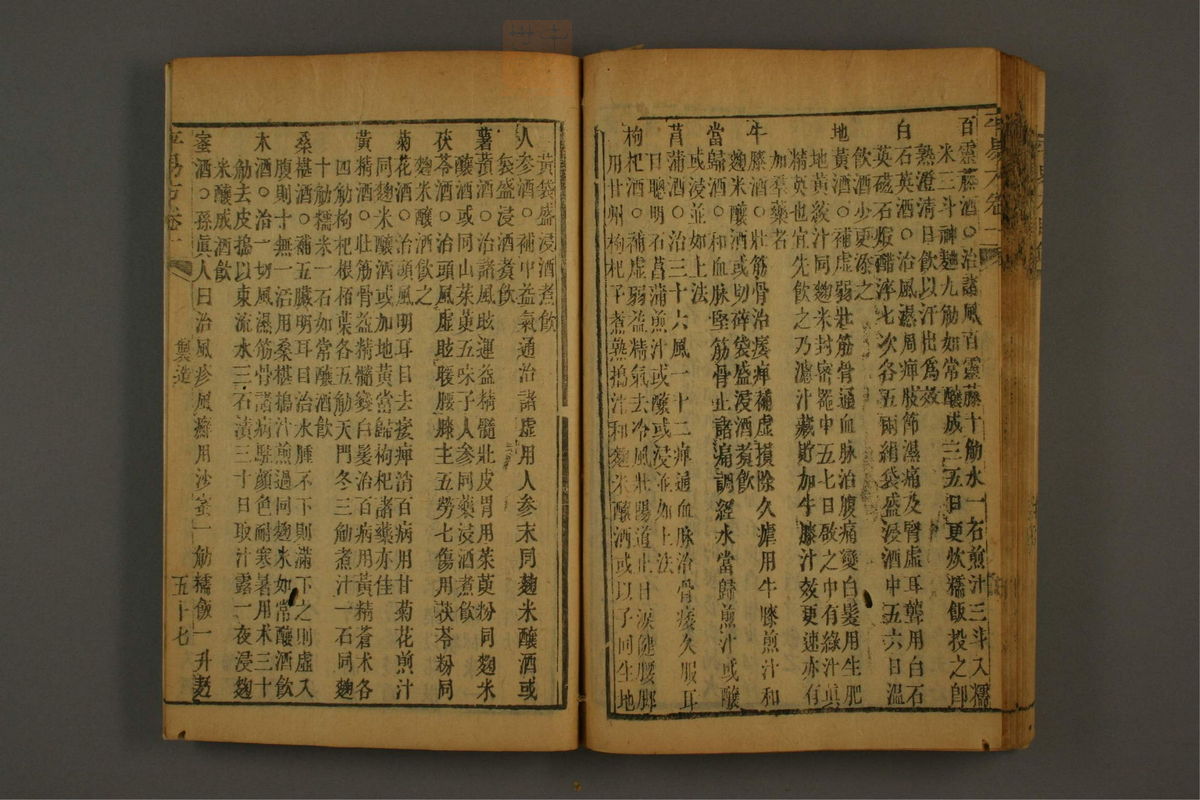 百靈藤酒○治諸風百靈藤十觔水一石煎汁三斗入糯
米三斗神麯九觔如常釀成三五日更炊糯飯投之卽
熟澄清日飲以汗出爲效
白石英酒○治風濕周痺肢節濕痛及腎虛耳聾用白石
英磁石煅醋淬七次各五兩絹袋盛浸酒中五六日溫
飲酒少更添之
地黃酒○補虛弱壯筋骨通血脉治腹痛變白髮用生肥
地黃絞汁同麴米封密器中五七日啟之中有綠汁眞
精英也宜先飲之乃濾汁藏貯加牛膝汁效更速亦有
加羣藥者
牛膝酒○壯筋骨治痿痺補虛損除久瘧用牛膝煎汁和
麴米釀酒或切碎袋盛浸酒煮飲
當歸酒○和血脉堅筋骨止諸痛調經水當歸煎汁或釀
或浸並如上法
菖蒲酒○治三十六風一十二痺通血脉治骨痿久服耳
目聰明石菖蒲煎汁或釀或浸並如上法
枸杞酒○補虛弱益精氣去冷風壯陽道止目淚健腰脚
用甘州枸杞子煮熟搗汁和麴米釀酒或以子同生地
黃袋盛浸酒煮飲
人參酒○補中益氣通治諸虛用人參末同麴米釀酒或
袋盛浸酒煮飲
薯蕷酒○治諸風眩運益精髓壯皮胃用茱萸粉同麴米
釀酒或同山茱萸五味子人參同藥浸酒煮飲
茯苓酒○治頭風虛眩暖腰膝主五勞七傷用茯苓粉同
麴米釀酒飲之
菊花酒○治頭風明耳目去痿痺消百病用甘菊花煎汁
同麴米釀酒或加地黃當歸枸杞諸藥亦佳
黃精酒○壯筋骨益精髓變白髮治百病用黃精蒼术各
四觔枸杞根栢葉各五觔天門冬三觔煮汁一石同麴
十觔糯米一石如常釀酒飲
桑椹酒○補五臟明耳目治水腫不下則滿下之則虛入
腹則十無一活用桑椹搗汁煎過同麴米如常釀酒飲
术酒○治一切風濕筋骨諸病駐顏色耐寒暑用术三十
觔去皮搗以東流水三石漬三十日取汁露一夜浸麴
米釀成酒飲
蜜酒○孫眞人曰治風疹風癬用沙蜜一觔糯飯一升麪
卷一
製造
五十七